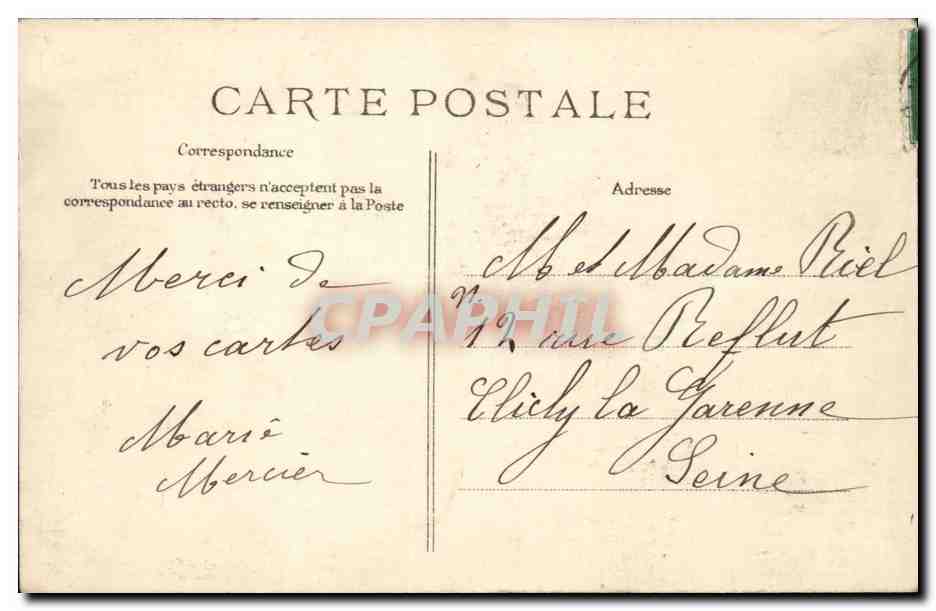 CARTE POSTALE
Correspondance
Tous les pays étrangers n'acceptent pas la
correspondance au recto, se renseigner à la Poste
Merci de
vos cartes
Marie
Mercier
Adresse
M et Madame Riel
12 rue Reflut
Clichy la Garenne
Seine
CPAPHIL